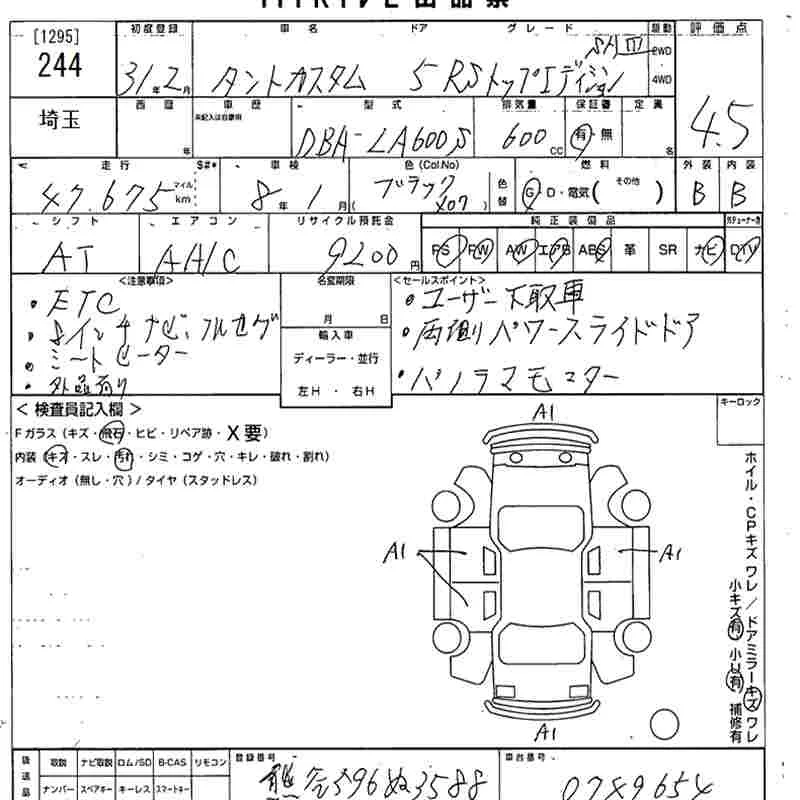 [1295]
244
初度登録 車名 ドア グレード 駆動 評価点
31年2月 タントカスタム 5 RSトップエディション SAIII 2WD 4WD
4.5
埼玉
西暦 車歴 型式 排気量 保証書 定員
年 未記入は自家用 DBA-LA600S 600cc 有・無 名
走行 $#* 車検 色(Col.No) 燃料 外装 内装
47.675 マイル km 8年1月 (ブラック X07) 色替 G・D・電気( その他 ) B B
シフト エアコン リサイクル預託金 純正装備品
AT AA/C 9200円 PS PW AW エアB ABS 革 SR ナビ DTV
<注意事項> 名変期限 <セールスポイント>
・ETC
・8インチナビ、フルセグ
・シートヒーター
・外品有り
月 日
輸入車
ディーラー・並行
左H ・ 右H
・ユーザー下取車
・両側パワースライドドア
・パノラマモニター
< 検査員記入欄 >
Fガラス(キズ・飛石・ヒビ・リペア跡・X要)
内装(キズ・スレ・汚れ・シミ・コゲ・穴・キレ・破れ・割れ)
オーディオ(無し・穴)/タイヤ(スタッドレス)
キーロック
A1
A1
A1
A1
ホイル・CPキズ ワレ/ドアミラーキズ ワレ
小キズ有 小U有 補修有
後送品 取説 ナビ取説 ロム/SD B-CAS リモコン
ナンバー スペアキー キーレス スマートキー
登録番号
596ぬ3588
車台番号
0749654